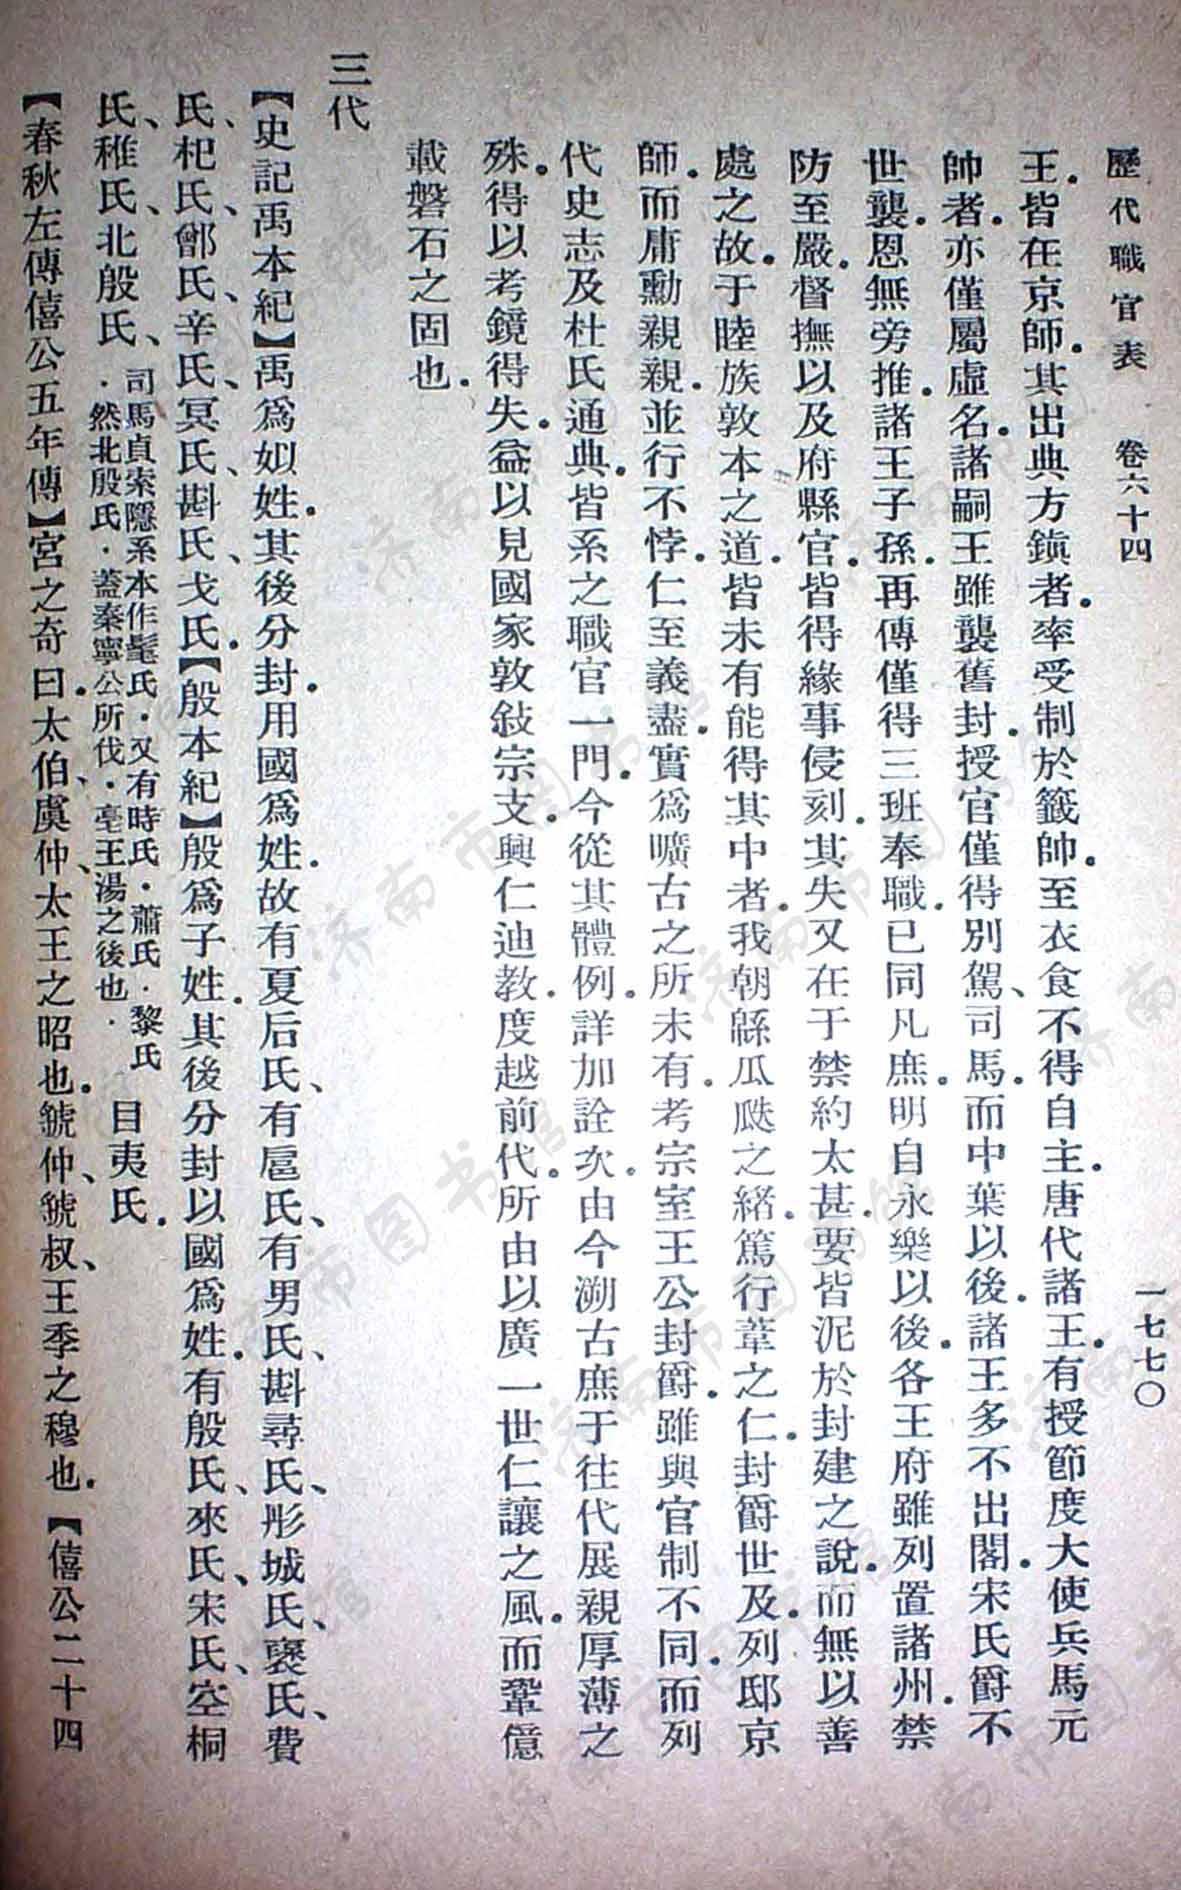 歷代職官表　卷六十四　一七七〇
王。皆在京師。其出典方鎮者。率受制於籤帥。至衣食不得自主。唐代諸王。有授節度大使兵馬元
帥者。亦僅屬虛名。諸嗣王雖襲舊封。授官僅得別駕、司馬。而中葉以後。諸王多不出閣。宋氏爵不
世襲。恩無旁推。諸王子孫。再傳僅得三班奉職。已同凡庶。明自永樂以後。各王府雖列置諸州。禁
防至嚴。督撫以及府縣官。皆得緣事侵刻。其失又在于禁約太甚。要皆泥於封建之說。而無以善
處之故。于睦族敦本之道。皆未有能得其中者。我朝緜瓜瓞之緒。篤行葦之仁。封爵世及。列邸京
師。而庸勳親親。並行不悖。仁至義盡。實爲曠古之所未有。考宗室王公封爵。雖與官制不同。而列
代史志及杜氏通典。皆系之職官一門。今從其體例。詳加詮次。由今溯古。庶于往代展親厚薄之
殊。得以考鏡得失。益以見國家敦敍宗支。興仁迪教。度越前代。所由以廣一世仁讓之風。而鞏億
載磐石之固也。
三代
【史記禹本紀】禹爲姒姓。其後分封。用國爲姓。故有夏后氏、有扈氏、有男氏、斟尋氏、彤城氏、襃氏、費
氏、杞氏、鄫氏、辛氏、冥氏、斟氏、戈氏。【殷本紀】殷爲子姓。其後分封。以國爲姓。有殷氏、來氏、宋氏、空桐
氏、稚氏、北殷氏、司馬貞索隱系本作髦氏．又有時氏．蕭氏．黎氏．然北殷氏．蓋秦寧公所伐．亳王湯之後也．目夷氏。
【春秋左傳僖公五年傳】宮之奇曰。太伯、虞仲、太王之昭也。虢仲、虢叔、王季之穆也。【僖公二十四
济南市图书馆